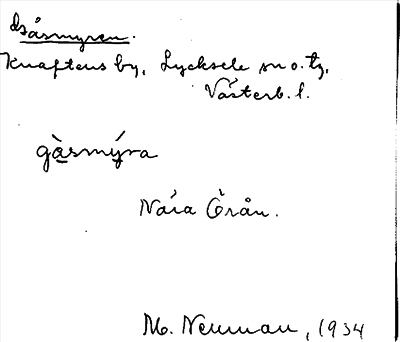 Gåsmyren.
Knaftens by, Lycksele sn o. tg,
Västerb. l.
gåsmýra
Nära Örån.
M. Neuman, 1934